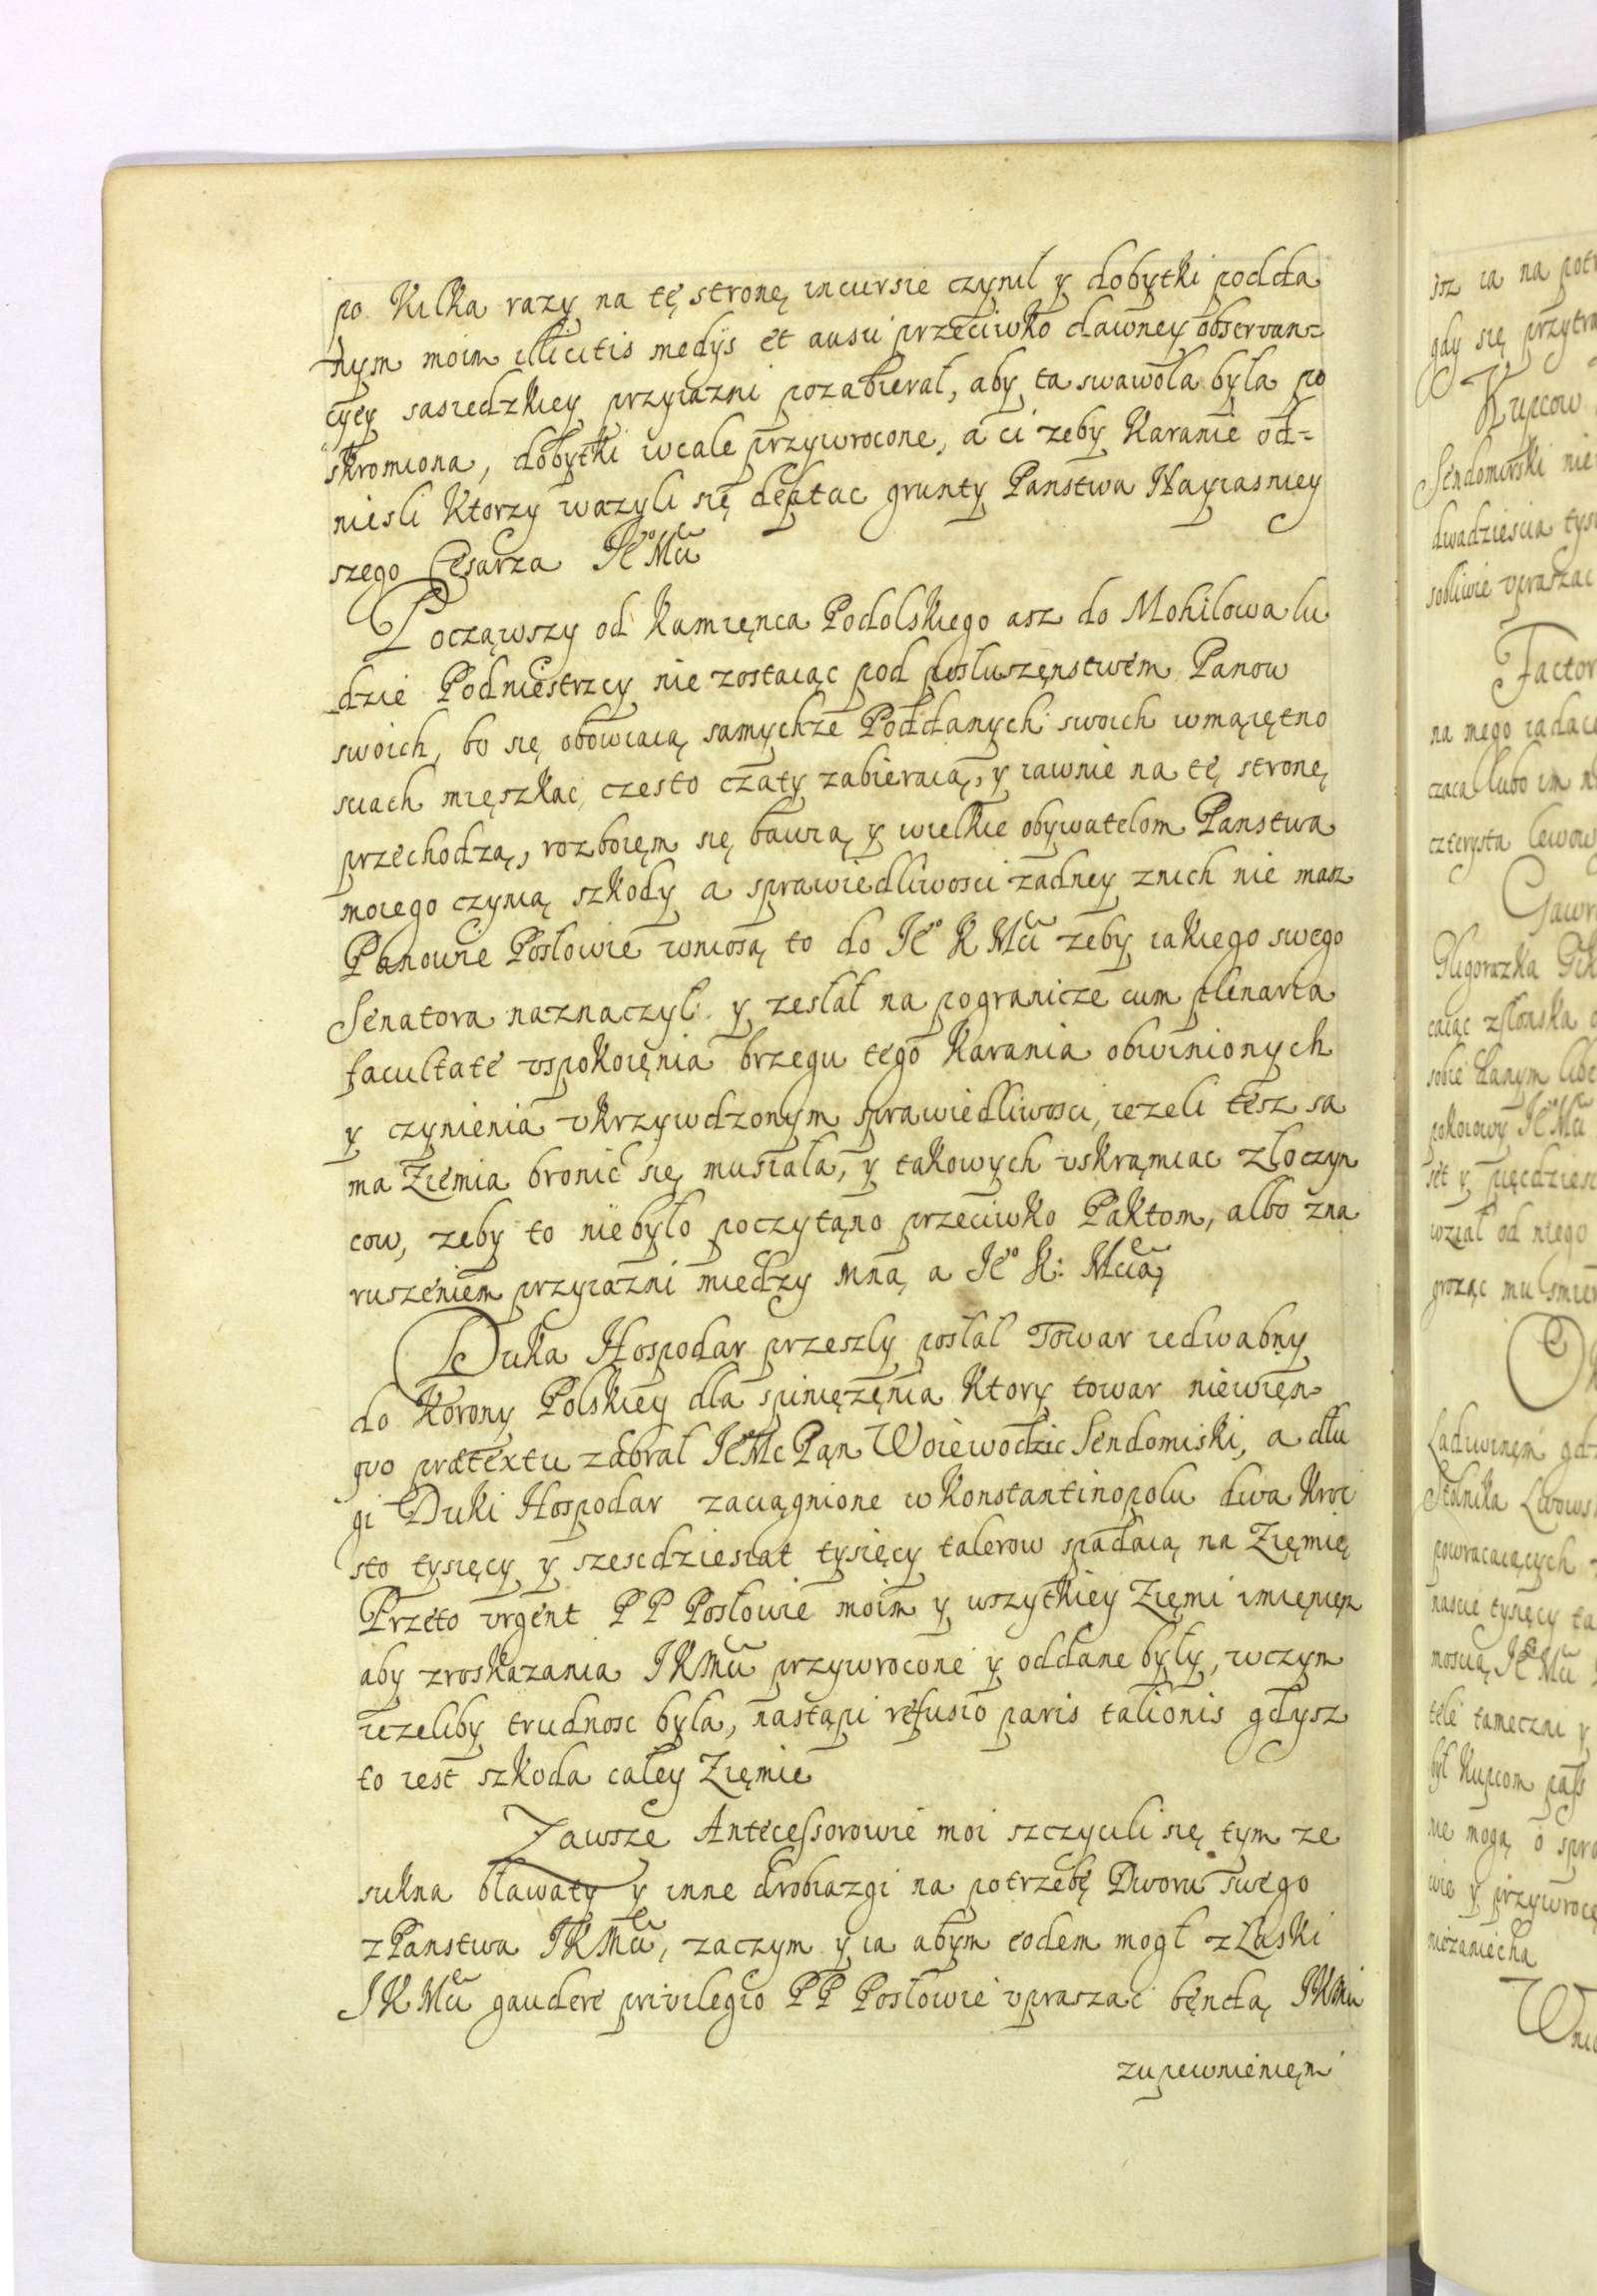 po Kilka razy na tę stronę incursie czynil y dobytki podda
nym moim illicitis medijs et ausu przeciwko dawney observan=
cyey sasiedzkiey przyiazni pozabieral, aby ta swawola byla po
skromiona, dobytki wcale przywrocone, a ci zeby Karanie od=
niesli Ktorzy wazyli się deptac grunty Panstwa Nayiasniey
szego Cesarza Jeo Mci
Począwszy od Kamięnca Podolskiego asz do Mohilowa lu
dzie Podniestrzcy nie zostaiąc pod posluszęnstwem Panow
swoich, bo się obowiaią samychze Poddanych swoich w maiętno
sciach mięszkac, czesto czaty zabieraią, y iawnie na tę stronę
przechodzą, rozboięm się bawią y wielkie obywatelom Panstwa
moiego czynią szkody a sprawiedliwosci zadney znich nie masz
Panowie Poslowie wniosą to do Jeo K Mci zeby iakiego swego
Senatora naznaczyl y zeslal na pogranicze cum plenaria
facultate vspokoięnia brzegu tego Karania obwinionych
y czynienia vkrzywdzonym sprawiedliwosci, iezeli tesz sa
ma Ziemia bronic się musiala, y takowych vskrąmiac zloczyn
cow, zeby to niebylo poczytąno przeciwko Paktom, albo zna
ruszeniem przyiazni miedzy mną a Jeo K: Mcią,
Duka Hospodar przeszly poslal Towar iedwabny
do Korony Polskiey dla spinięzęnia Ktory towar niewięn
quo prætextu zabral Jeo Mc Pąn Woiewodzic Sendomiski, a dlu
gi Duki Hospodar zaciągnione w Konstantinopolu dwa Kroc
sto tysięcy y szescdziesiat tysięcy talerow spadaią na Zięmię
Przeto vrgent P P Poslowie moim y wszytkiey Zięmi imięnięm
aby zroskazania J K Mci przywrocone y oddane były, wczym
iezeliby trudnosc byla, nastąpi refusio paris talionis gdysz
to iest szkoda całey Zięmie
Zawsze Antecessorowie moi szczycili się tym ze
sukna bławaty y inne drobiazgi na potrzebę Dworu swego
z Panstwa J K Mci, zaczym y ia abym eodem mogł z Laski
J K Mci gaudere privilegio P P Poslowie vpraszac będą J K Mci
zupewnienięm
isz ia na potr
gdy się przytra
Kupcow
Sendomirski nie
dwadziescia tysi
sobliwie vpraszac
Factor
na mego iadac
czaca lubo im n
czterysta lewow
Gawr
sobie danym libe
pokoiowy Jeo Mci
set y pięcdziesi
wzial od niego
grożąc mu smier
Ladwinem gd
Stolnika Lwows
powracaiących
nascie tysięcy ta
moscią Jeo Mci
tele tameczni y
był Kupcom pass
nie mogą o spra
wie y przywroce
niezaniecha
Wni